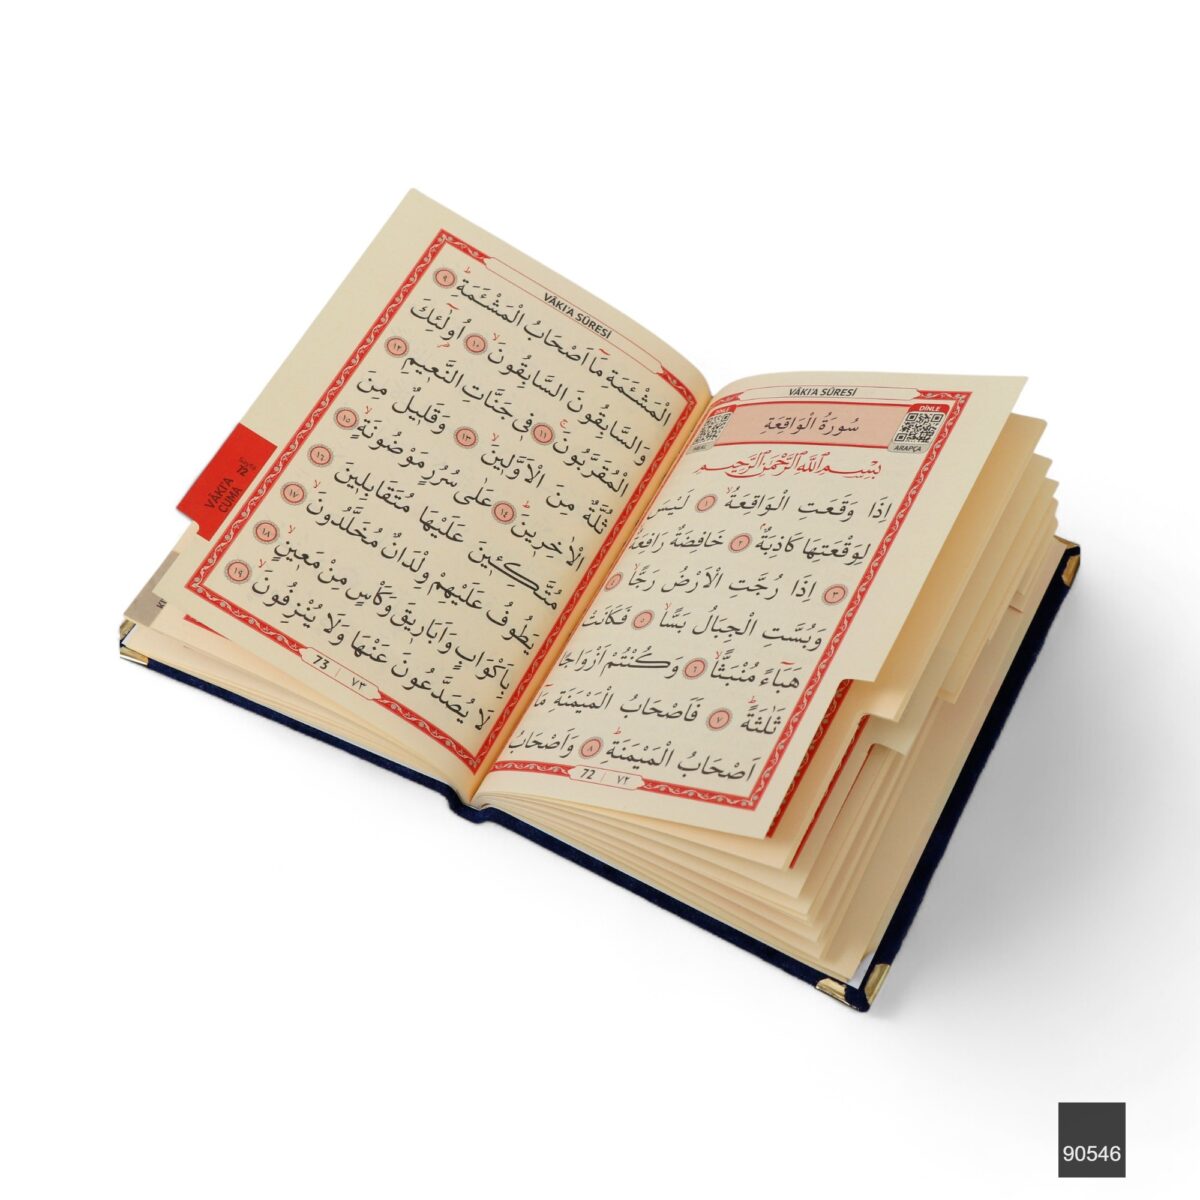 VÂKI'A SÛRESİ
DİNLE
DİNLE
MEAL
ARAPÇA
سُورَةُ الْوَاقِعَةِ
بِسْمِ اللّٰهِ الرَّحْمٰنِ الرَّحِيمِ
اِذَا وَقَعَتِ الْوَاقِعَةُ ١ لَيْسَ
لِوَقْعَتِهَا كَاذِبَةٌ ٢ خَافِضَةٌ رَافِعَةٌ
٣ اِذَا رُجَّتِ الْاَرْضُ رَجًّا ٤
وَبُسَّتِ الْجِبَالُ بَسًّا ٥ فَكَانَتْ
هَبَاءً مُنْبَثًّا ٦ وَكُنْتُمْ اَزْوَاجًا
ثَلٰثَةً ٧ فَاَصْحَابُ الْمَيْمَنَةِ مَا
اَصْحَابُ الْمَيْمَنَةِ ٨ وَاَصْحَابُ
72 | ٧٢
VÂKI'A SÛRESİ
الْمَشْـَٔمَةِ مَا اَصْحَابُ الْمَشْـَٔمَةِ ٩
وَالسَّابِقُونَ السَّابِقُونَ ١٠ اُولٰٓئِكَ
الْمُقَرَّبُونَ ١١ فِى جَنَّاتِ النَّعِيمِ ١٢
ثُلَّةٌ مِنَ الْاَوَّلِينَ ١٣ وَقَلِيلٌ مِنَ
الْاٰخِرِينَ ١٤ عَلٰى سُرُرٍ مَوْضُونَةٍ ١٥
مُتَّكِـِٔينَ عَلَيْهَا مُتَقَابِلِينَ ١٦
يَطُوفُ عَلَيْهِمْ وِلْدَانٌ مُخَلَّدُونَ ١٧
بِاَكْوَابٍ وَاَبَارِيقَ وَكَأْسٍ مِنْ مَعِينٍ ١٨
لَا يُصَدَّعُونَ عَنْهَا وَلَا يُنْزِفُونَ ١٩
73 | ٧٣
VÂKI'A
CUMA
Sayfa
72
90546